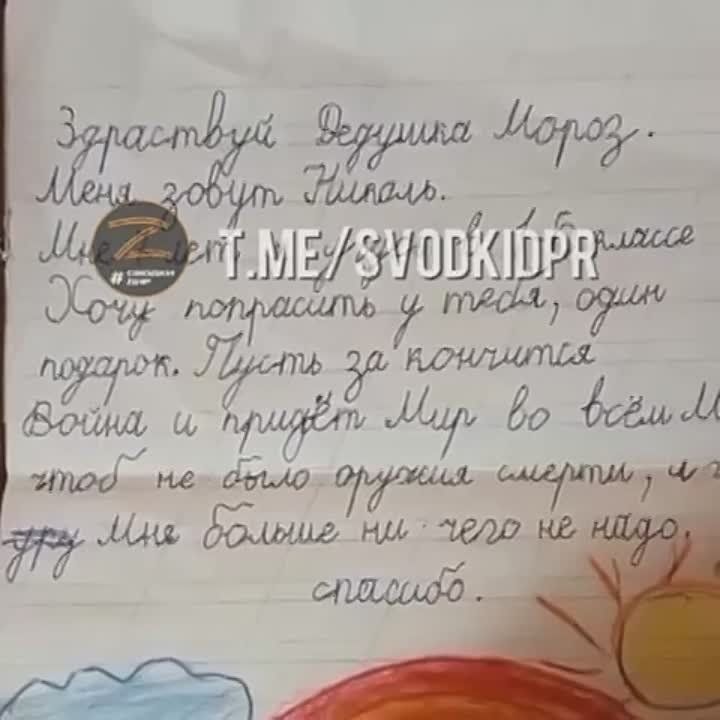 Здраствуй Дедушка Мороз.
Меня зовут Николь.
Мне лет классе
T.ME/SVODKIDPR
Z
#СВОДКИ
ДНР
Хочу попрасить у тебя, один
подарок. Пусть за кончится
Война и придёт Мир во всём М
чтоб не было оружия смерти, и
Мне больше ни чего не надо.
спасибо.